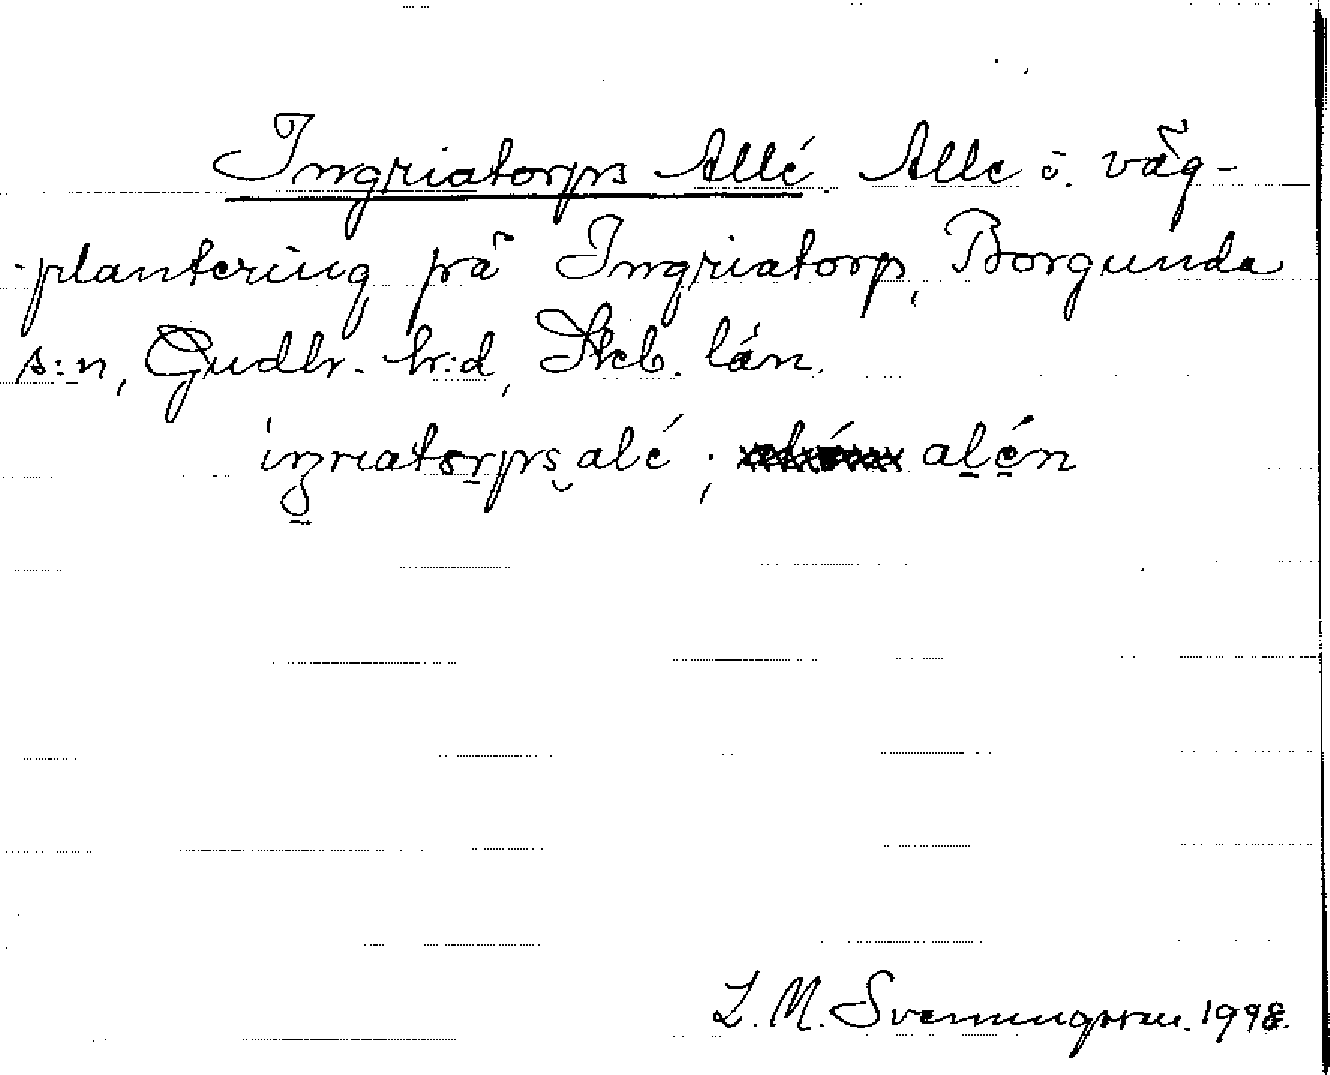 Ingriatorps Allé. Alle o. väg-
plantering på Ingriatorp, Borgunda
s:n, Gudhr. hr:d, Skcb. län.
iŋriatorps alé ; alén
L. M. Svenungsson. 1998.